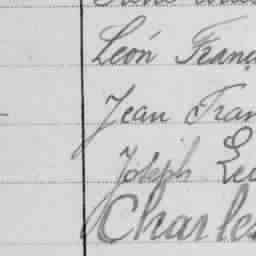 Léon Franç
Jean Fran
Joseph Le
Charles